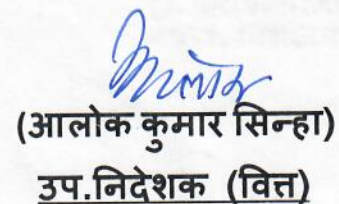 आलोक
(आलोक कुमार सिन्हा)
उप.निदेशक (वित्त)